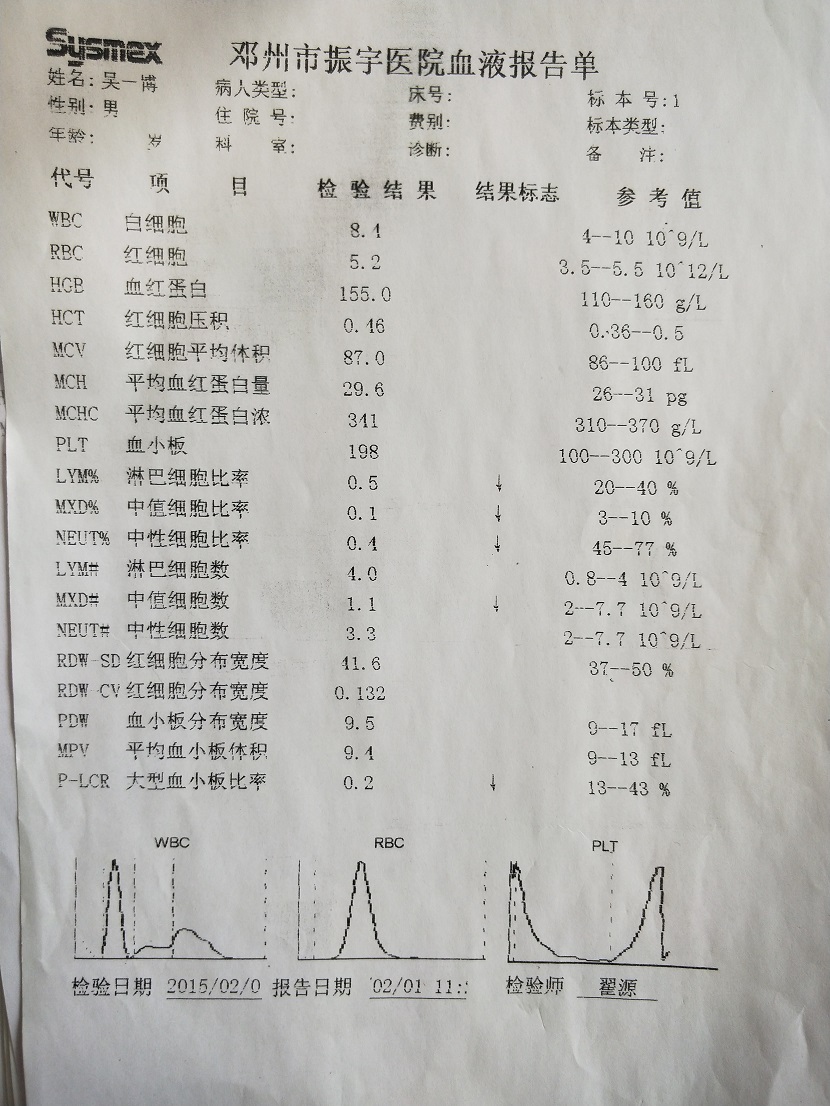 Sysmex
邓州市振宇医院血液报告单
姓名: 吴一博 病人类型: 床号: 标 本 号:1
性别: 男 住 院 号: 费别: 标本类型:
年龄: 岁 科 室: 诊断: 备 注:
代号 项 目 检 验 结 果 结果标志 参 考 值
WBC 白细胞 8.4 4--10 10^9/L
RBC 红细胞 5.2 3.5--5.5 10^12/L
HGB 血红蛋白 155.0 110--160 g/L
HCT 红细胞压积 0.46 0.36--0.5
MCV 红细胞平均体积 87.0 86--100 fL
MCH 平均血红蛋白量 29.6 26--31 pg
MCHC 平均血红蛋白浓 341 310--370 g/L
PLT 血小板 198 100--300 10^9/L
LYM% 淋巴细胞比率 0.5 ↓ 20--40 %
MXD% 中值细胞比率 0.1 ↓ 3--10 %
NEUT% 中性细胞比率 0.4 ↓ 45--77 %
LYM# 淋巴细胞数 4.0 0.8--4 10^9/L
MXD# 中值细胞数 1.1 ↓ 2--7.7 10^9/L
NEUT# 中性细胞数 3.3 2--7.7 10^9/L
RDW-SD 红细胞分布宽度 41.6 37--50 %
RDW-CV 红细胞分布宽度 0.132
PDW 血小板分布宽度 9.5 9--17 fL
MPV 平均血小板体积 9.4 9--13 fL
P-LCR 大型血小板比率 0.2 ↓ 13--43 %
WBC RBC PLT
检验日期 2015/02/0 报告日期 02/01 11: 检验师 翟源